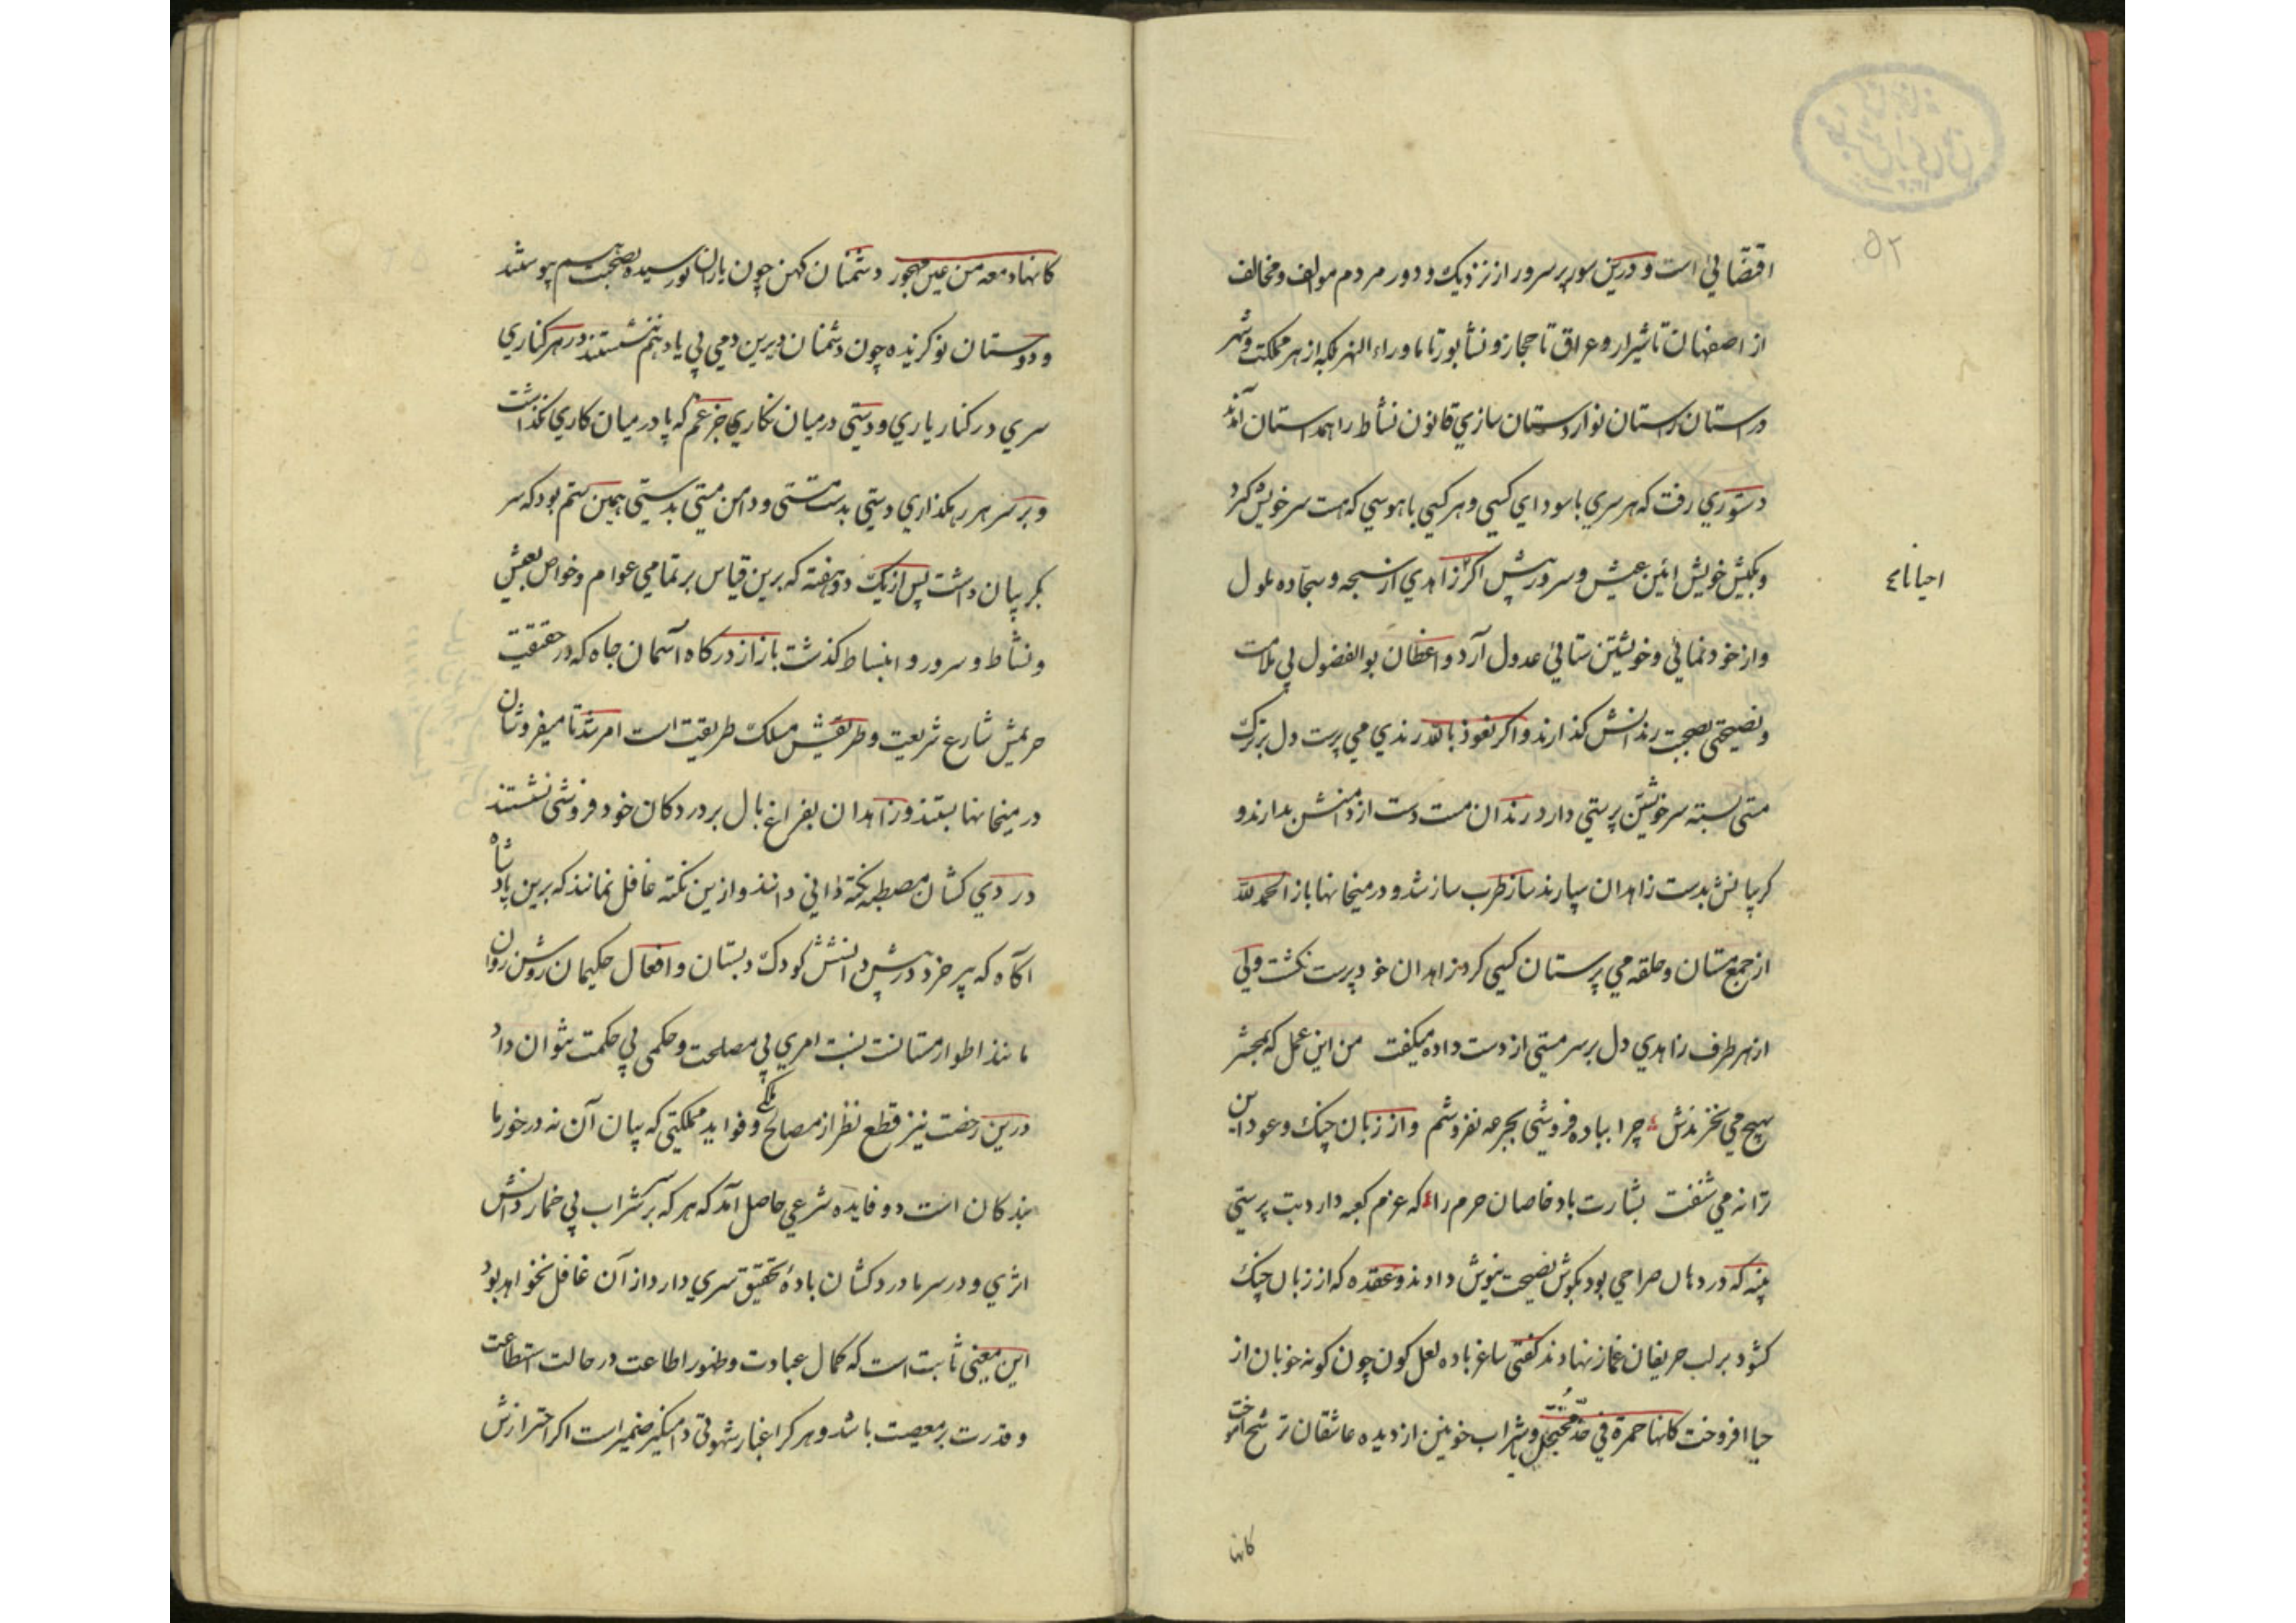 ۵۲
اقتضائی است و درین سور پر سرور از نزدیک و دور مردم مولف و مخالف
از اصفهان تا شیراز و عراق تا حجاز و نشابور تا ماوراء النهر بلکه از هر مملکت و شهر
در استان راستان نواز دستان سازی قانون نشاط را همداستان آمدند
دستوری رفت که هر سری با سودای کسی و هر کسی با هوسی که هست سر خویش کیرد
و بکیش خویش ائین عیش و سرور پیش اکر زاهدی از سبحه و سجاده ملول
احیانا
و از خود نمائی و خویشتن ستائی عدول آرد واعظان بوالفضول بی ملامت
و نصیحتی بصحبت رندانش کذارند و اکر نعوذ بالله رندی می پرست دل بر ترک
مستی بسته سر خویشتن پرستی دارد رندان مست دست از دامنش بدارند و
کریبانش بدست زاهدان سپارند ساز طرب ساز شد و در میخانها باز الحمد لله
از جمع مستان و حلقه می پرستان کسی کرد زاهدان خود پرست نکشت ولی
از هر طرف زاهدی دل بر سر مستی از دست داده میکفت من این عمل که بمحشر
بهیچ می نخرندش چرا بباده فروشی بجرعه نفروشم و از زبان چنک و عود این
ترانه می شنفت بشارت باد خاصان حرم را که عزم کعبه دارد بت پرستی
پنبه که در دهان صراحی بود بکوش نصیحت نیوش دادند و عقده که از زبان چنک
کشود بر لب حریفان غماز نهادند کفتی ساغر باده لعل کون چون کونه خوبان از
حیا افروخت کانها حمرة فی خد مخجل و شراب خونین از دیده عاشقان ترشح آموخت
کانها
کانها دمعه من عین مهجور دشمنان کهن چون یاران نو رسیده بصحبت هم پیوستند
و دوستان نو کزیده چون دشمنان دیرین دمی بی یاد هم ننشستند در هر کناری
سری در کنار یاری و دستی در میان نکاری جز غم که پا در میان کاری نکذاشت
و بر سر هر رهکذاری دستی بدست مستی و دامن مستی بدستی همین ستم بود که سر
بکریبان داشت پس از یک دو هفته که برین قیاس بر تمامی عوام و خواص بعیش
و نشاط و سرور و انبساط کذشت باز از درکاه آسمان جاه که در حقیقت
حریمش شارع شریعت و طریقش مسلک طریقت است امر شد تا میفروشان
در میخانها بستند و زاهدان بفراغ بال بر در دکان خود فروشی نشستند
دردی کشان مصطبه نکته دانی دانند و ازین نکته غافل نمانند که برین پادشاه
آکاه که پیر خرد در پیش دانشش کودک دبستان و افعال حکیمان روشن روان
مانند اطوار مستانست نسبت امری بی مصلحت و حکمی بی حکمت نتوان داد
درین رخصت نیز قطع نظر از مصالح ملکی و فواید مملکتی که بیان آن نه در خور ما
بندکان است دو فایده شرعی حاصل آمد که هر که بر سر شراب بی خمار دانش
اثری و در سر ما درد کشان بادهٔ تحقیق سری دارد از آن غافل نخواهد بود
این معنی ثابت است که کمال عبادت و ظهور اطاعت در حالت استطاعت
و قدرت بر معصیت باشد و هر کرا غبار شهوتی دامنکیر ضمیر است اکر احترازش